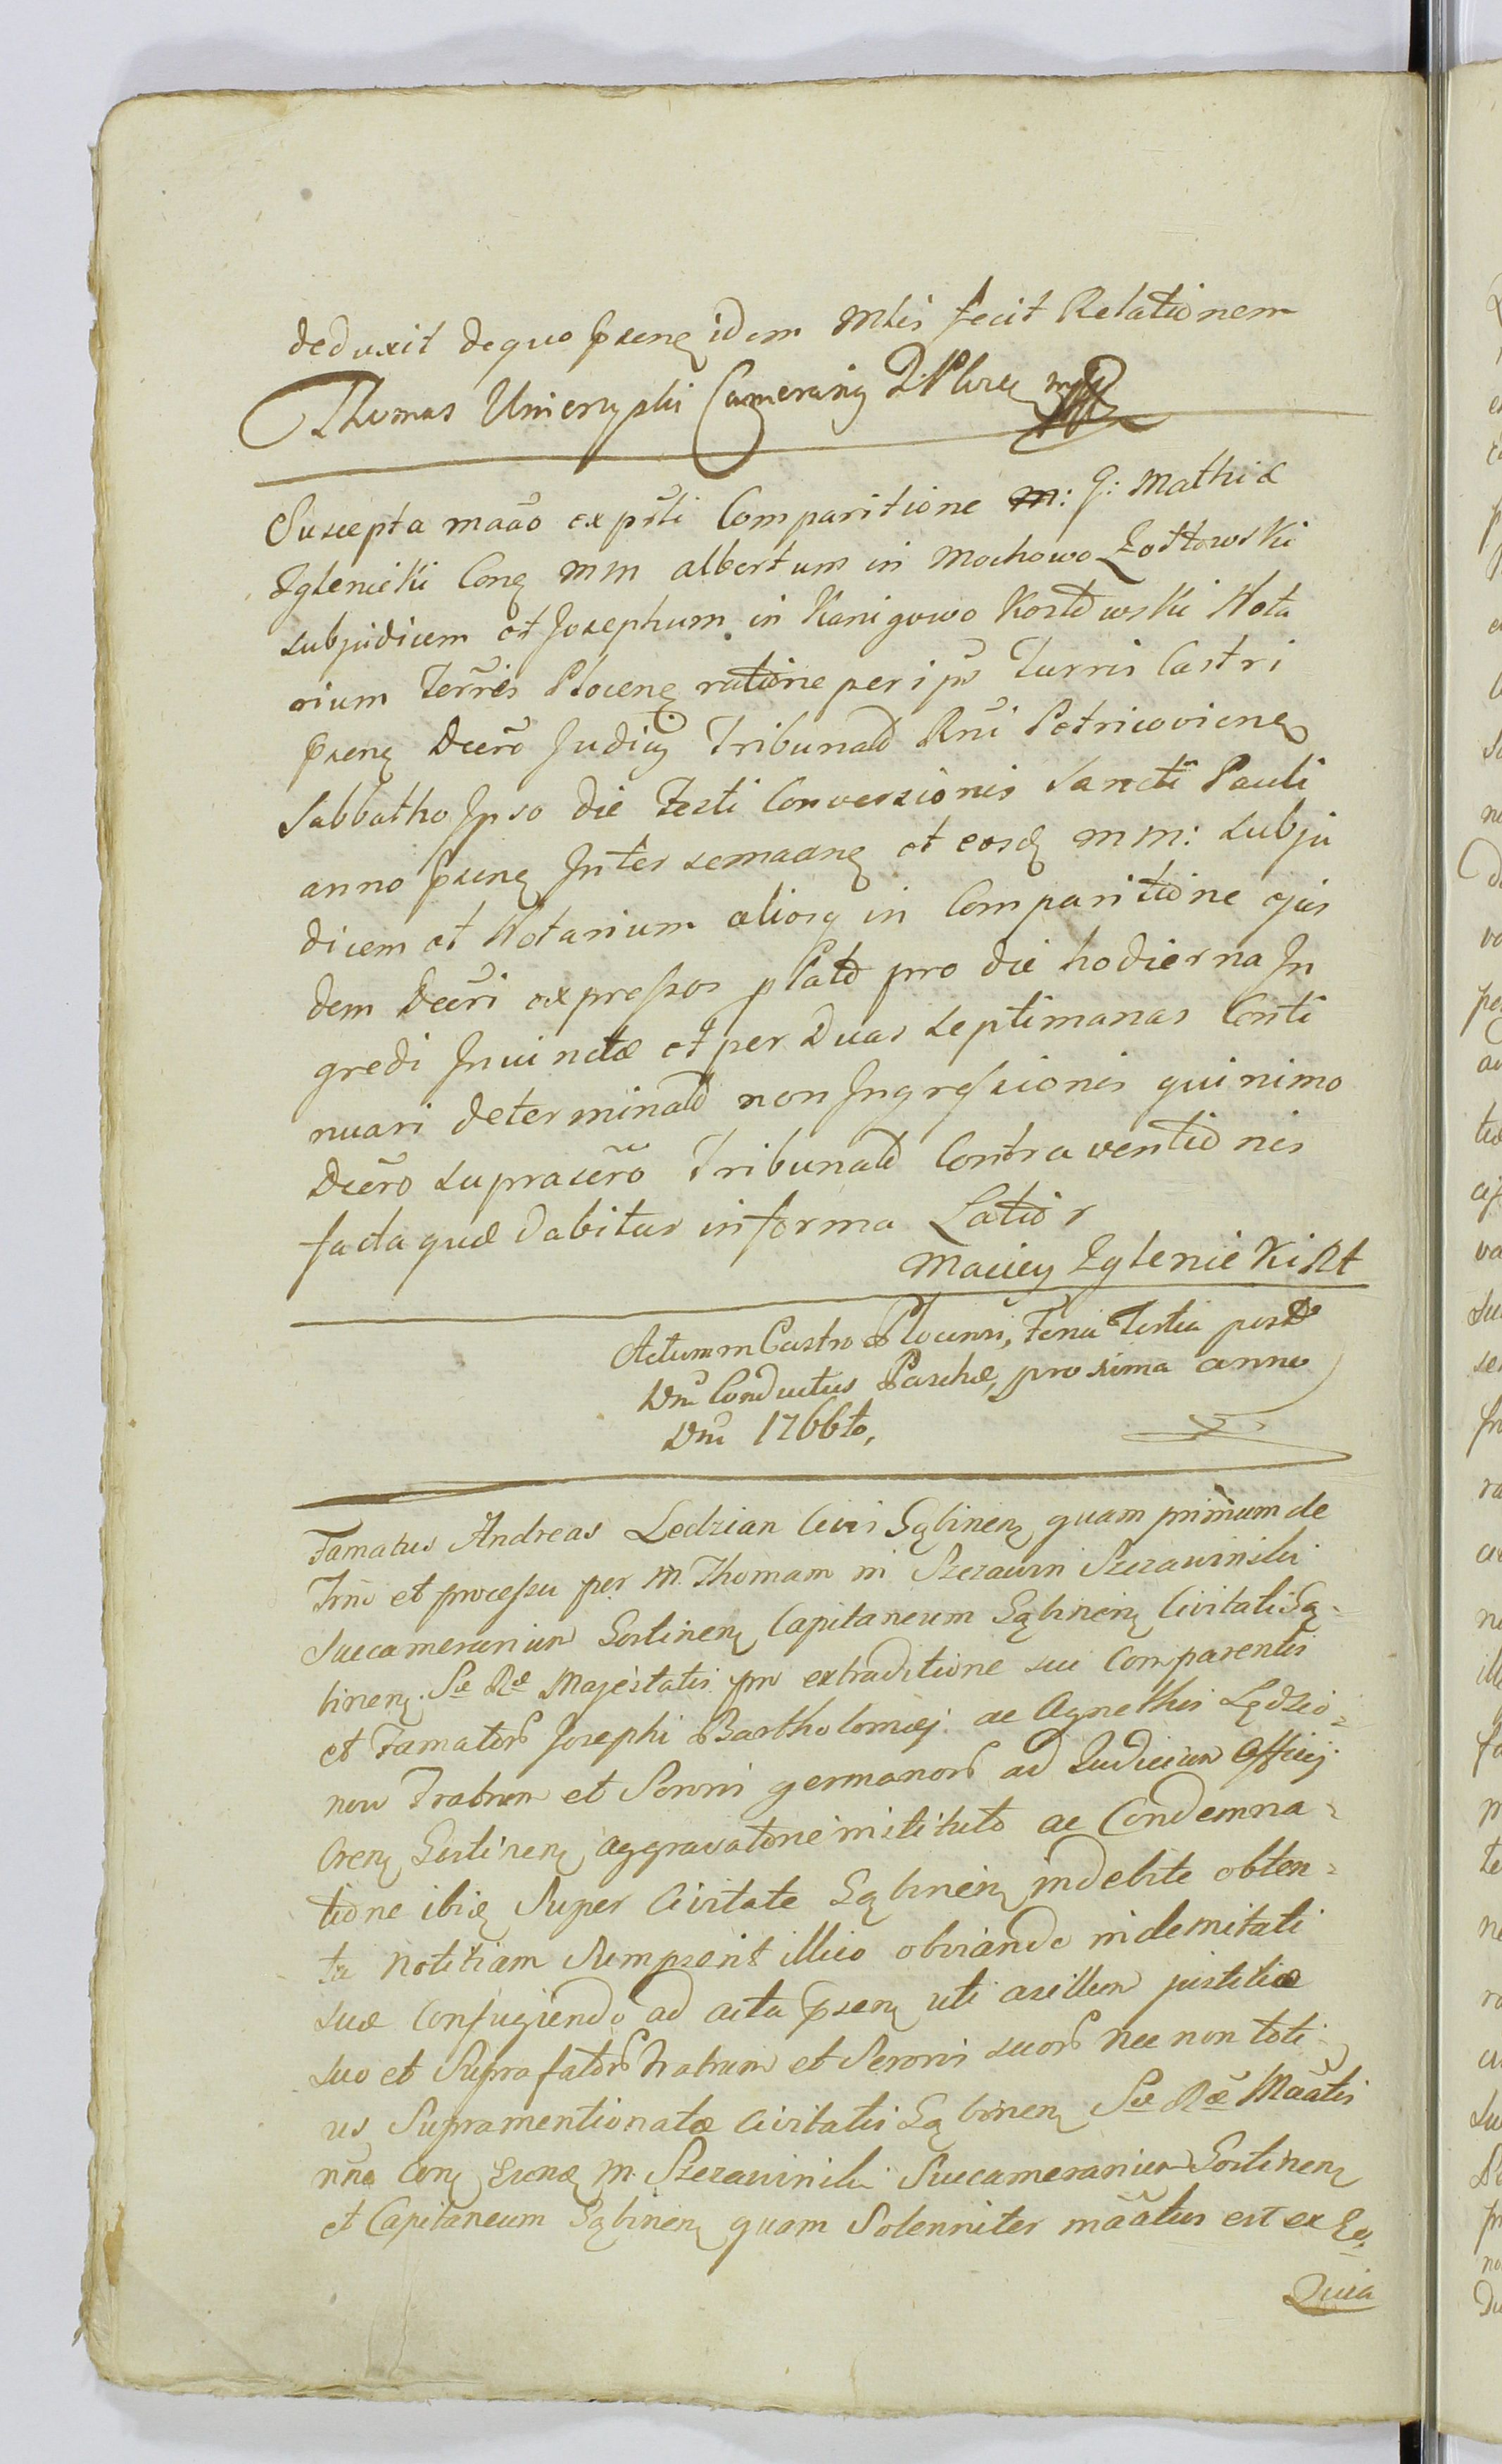 deduxit de quo pseng idem Mlis fecit Relationem
Thomas Umieryski Camerarig mpp
Suscepta maao ex psti Comparitione m: G: Mathiæ
Zglenicki Cong mm albertum in Mochowo Zołtowski
subjudicem et Josephum in Kanigowo Kostowski Nota
rium Terris Płoceng ratione per ips Turris Castri
pseng Decro Judicÿ Tribunald Rni Petricovieng
Sabbatho Ipso die Festi Conversionis Sancti Pauli
anno pseng Inter semaang et eosd mm: subju
dicem et Notarium aliosq in Comparitione ejus
dem Decri expressos platd pro die hodierna In
gredi Invinctæ et per Duas septimanas Conti
nuari determinatd non Ingressionis quinimo
Decro suprascro Tribunald Contraventionis
facta quæ dabitur in forma Latior
Maciey Zglenicki Rt
Actum in Castro Płocensi, Feria Tertia post
Dni Conductus Paschæ, proxima anno
Dni 1766to,
Famatus Andreas Ledzian Civis Gąbineng quam primum de
Trno et processu per M. Thomam in Szczawin Szczawinski
Succamerarium Gostineng Capitaneum Gąbineng Civitati Gą-
bineng Sæ Ræ Majestatis pro extraditione sui Comparentis
et Famatorum Josephi Bartholomæj ac Agnethis Lędzio-
now Fratrum et Sororis germanorum ad Judicium Officij
Crens Gostineng aggravatione instituto ac Condemna-
tione ibid Super Civitate Gąbineng indebite obten-
ta notitiam Sumpserit illico obviando indemnitati
suæ Confugiendo ad acta pseng uti asillum justitiæ
suo et Suprafatorum Fratrum et Sororis suorum nec non toti
us Supramentionatæ Civitatis Gąbineng Sæ Ræ Maatis
nne Cong M. Szczawinski Succamerarium Gostineng
et Capitaneum Gąbineng quam Solenniter maatus est ex Eo
Quia